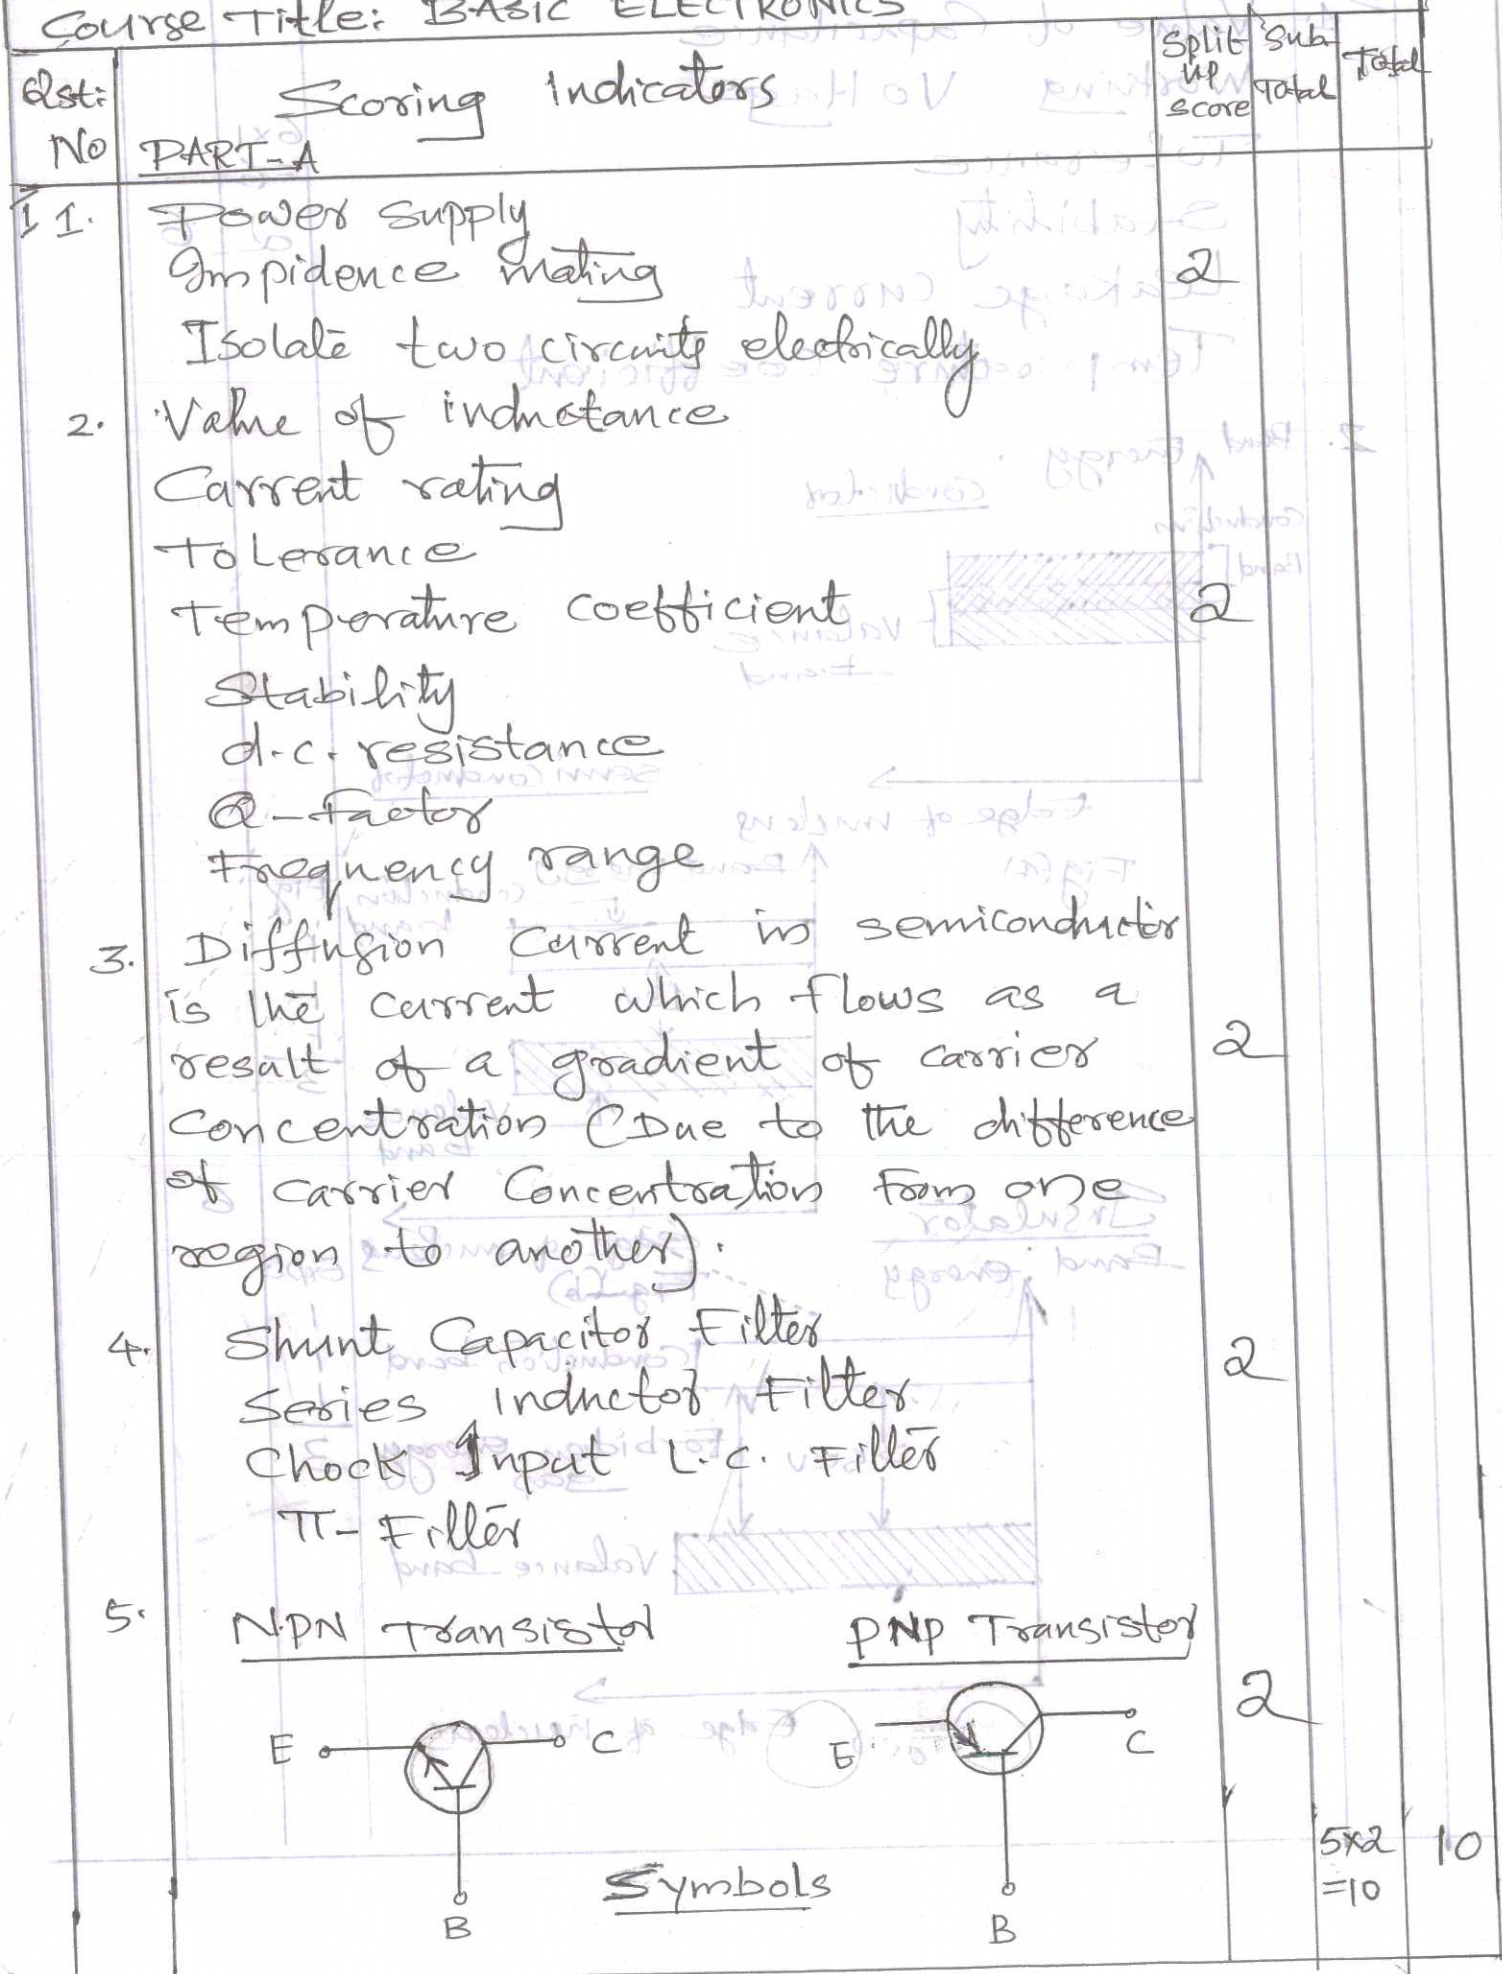 Course Title: BASIC ELECTRONICS
Qst: No
Scoring Indicators
Split up score
Sub Total
Total
PART-A
I 1. Power supply
Impidence mating
2
Isolate two circuits electrically
2. Value of inductance
Current rating
Tolerance
Temperature coefficient
2
Stability
d.c. resistance
Q-factor
Frequency range
3. Diffusion current in semiconductor
is the current which flows as a
result of a gradient of carrier
2
concentration (Due to the difference
of carrier concentration from one
region to another).
4. Shunt Capacitor Filter
2
Series inductor Filter
Chock Input L.C. Filter
π- Filter
5. NPN Transistor PNP Transistor
2
E C E C
5x2 =10
10
Symbols
B B